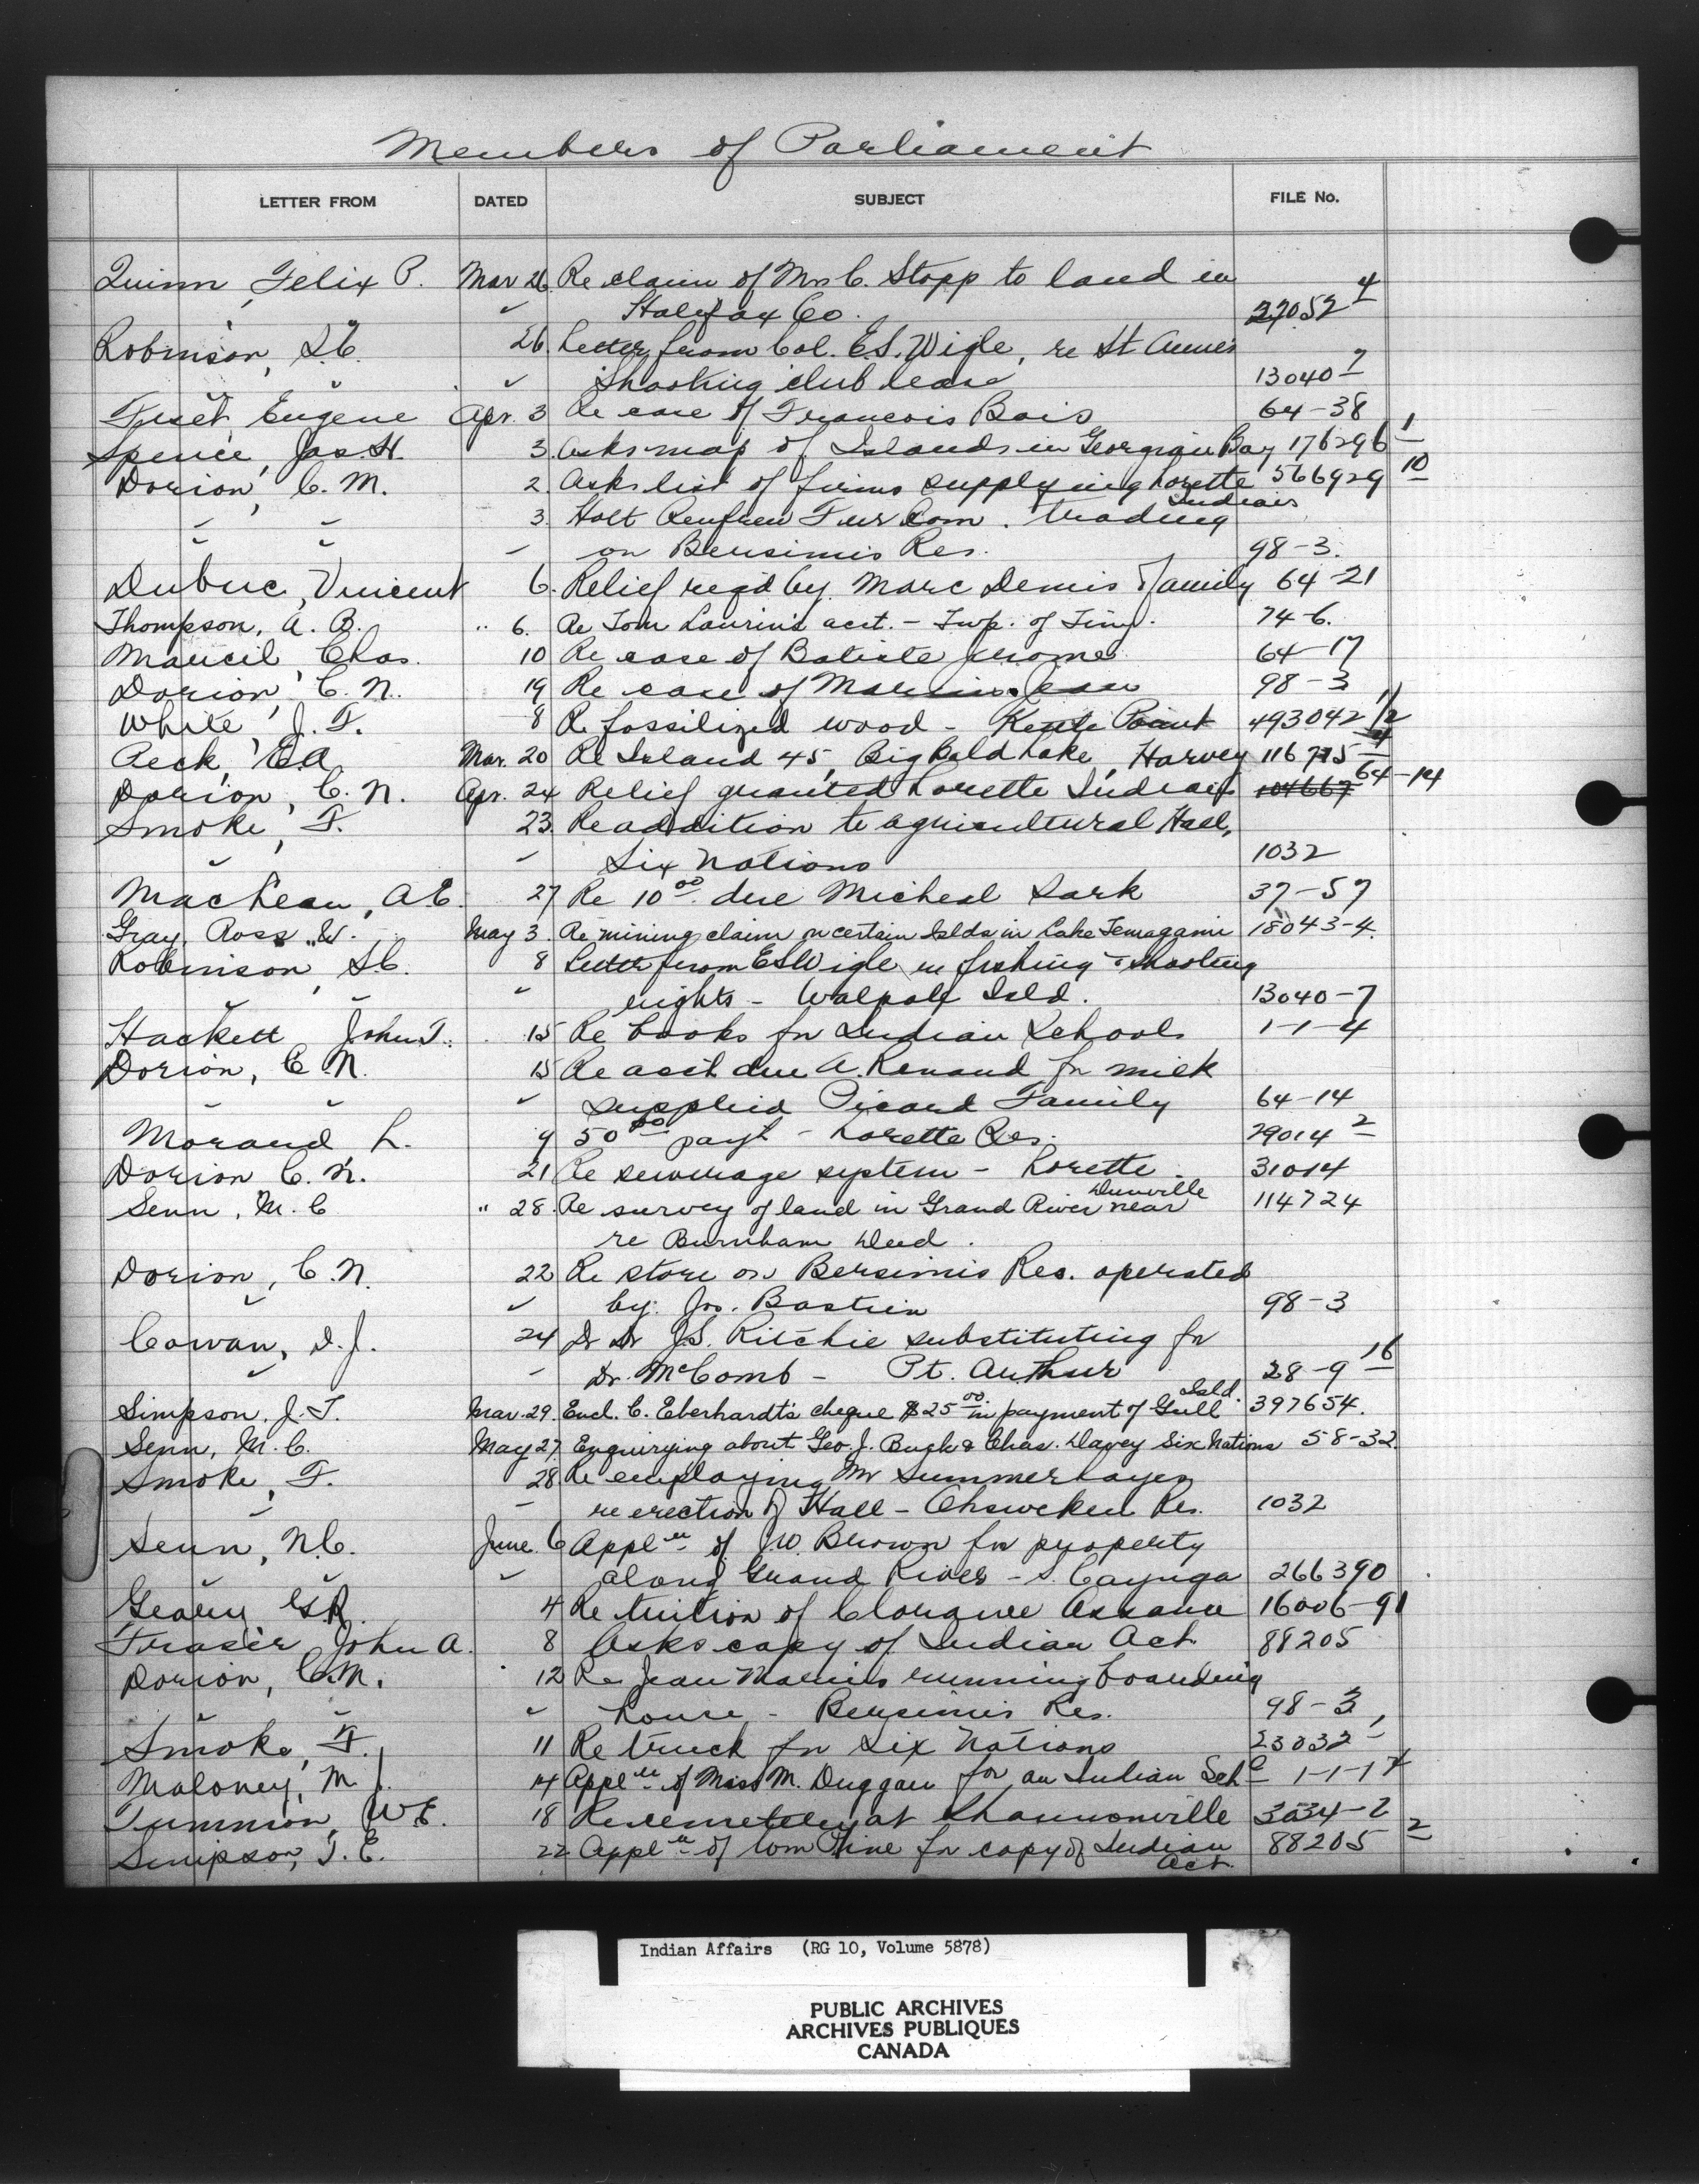 Members of Parliament
LETTER FROM DATED SUBJECT FILE No.
Quinn, Felix P. Mar 26. Re claim of Mrs C. Stopp to land in
" Halifax Co. 27052 4
Robinson, S.C. 26. Letter from Col. E.S. Wigle, re St Anne's
" " Shooting club lease 13040 7
Fiset, Eugene Apr. 3 Re case of Francois Bois 64-38
Spence, Jas. H. 3. Asks map of Islands in Georgian Bay 176296 1
Dorion, C. M. 2. Asks list of firms supplying Lorette Indians 566929 10
" " 3. Holt Renfrew Fur Com. trading
" " on Bersimis Res. 98-3.
Dubuc, Vincent 6. Relief req'd by Marc Denis family 64-21
Thompson, A. B. " 6. Re Tom Laurin's acct. - Twp. of Tiny. 74-6.
Marcil, Chas. 10 Re case of Batiste Jerome 64-17
Dorion, C. N. 19 Re case of 98-3
White, J. F. 8 Re fossilized wood - Kettle Point 493042 1/2
Peck, E.A. Mar. 20 Re Island 45, Big Bald Lake, Harvey 116715 4
Dorion, C. N. Apr. 24 Relief granted Lorette Indians 104667 64-14
Smoke, F. 23. Re addition to agricultural Hall,
" " Six Nations 1032
MacLean, A.E. 27 Re 10 00 due Micheal Sark 37-57
Gray, Ross W. May 3. Re mining claim on certain Islds in Lake Temagami 18043-4.
Robinson, S.C. " 8 Letter from ES Wigle re fishing & shooting
" " rights - Walpole Isld. 13040-7
Hackett John T. 15 Re books for Indian Schools 1-1-4
Dorion, C. N. 15 Re acct due A. Renaud for milk
" " supplied Picard Family 64-14
Morand L. 9 50 00 payt - Lorette Res. 29014 2
Dorion C. N. 21 Re sewerage system - Lorette. 31014
Senn, M. C " 28. Re survey of land in Grand River near Dunnville 114724
re Burnham Deed.
Dorion, C. N. 22 Re store on Bersimis Res. operated
" " by Jos. Bastien 98-3
Cowan, D. J. 24 Dr J.S. Ritchie substituting for
" " Dr. McComb - Pt. Arthur 28-9 16
Simpson, J. T. Mar. 29. Encl. C. Eberhardt's cheque $25 00 in payment of Gull Isld. 397654.
Senn, M. C. May 27. Enquirying about Geo. J. Buck & Chas. Davey Six Nations 58-32
Smoke, F. 28 Re employing Mr Summerhayes
" " re erection of Hall - Ohsweken Res. 1032
Senn, N.C. June 6 Appl'n of J.W. Brown for property
" " along Grand River - S. Cayuga 266390
Geary, G.R. 4 Re tuition of 16006-91
Fraser John A. 8 Asks copy of Indian Act 88205
Dorion, C. N. 12 Re Jean running boarding
" " house - Bersimis Res. 98-3
Smoke, F. 11 Re truck for Six Nations 23032 1
Maloney, M. J. 14 Appl'n of Miss M. Duggan for an Indian Schl 1-1-1 4
Tummon, W.E. 18 Re cemetery at Shannonville 3034-2
Simpson, T. E. 22 Appl'n of Wm Pine for copy of Indian Act. 88205 2
Indian Affairs (RG 10, Volume 5878)
PUBLIC ARCHIVES
ARCHIVES PUBLIQUES
CANADA